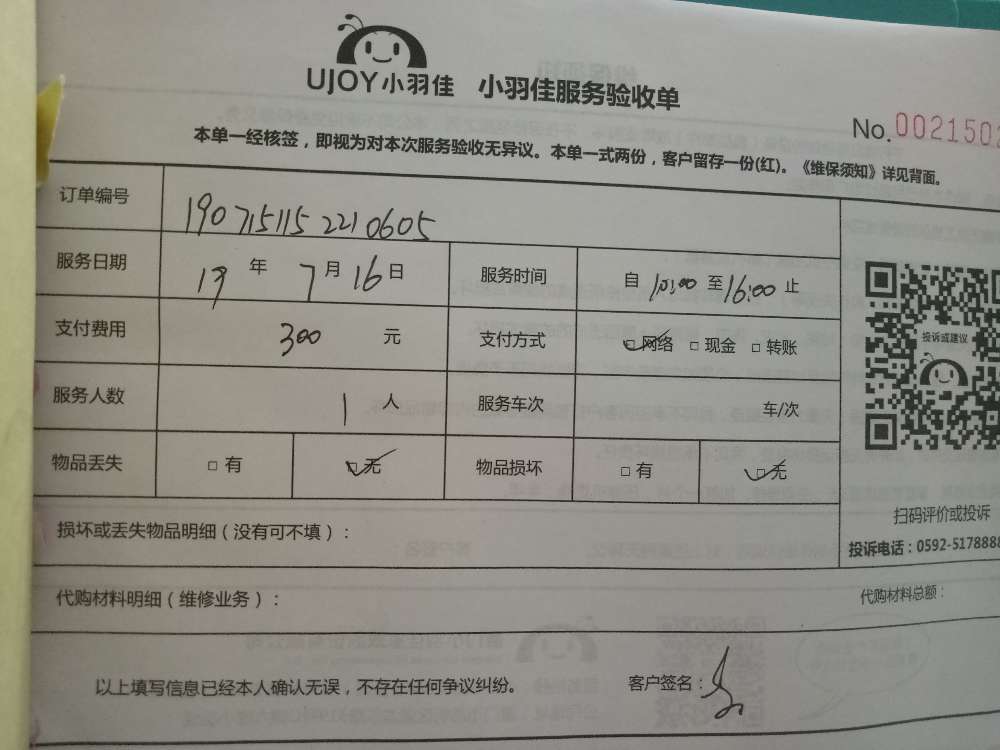 UJOY小羽佳 小羽佳服务验收单
No. 0021502
本单一经核签，即视为对本次服务验收无异议。本单一式两份，客户留存一份(红)。《维保须知》详见背面。
订单编号 190715115 2210605
服务日期 19 年 7 月 16 日 服务时间 自 10:00 至 16:00 止
支付费用 300 元 支付方式 □ 网络 □ 现金 □ 转账
服务人数 1 人 服务车次 车/次
物品丢失 □ 有 □ 无 物品损坏 □ 有 □ 无
投诉或建议
扫码评价或投诉
投诉电话：0592-5178888
损坏或丢失物品明细（没有可不填）：
代购材料明细（维修业务）： 代购材料总额：
以上填写信息已经本人确认无误，不存在任何争议纠纷。 客户签名：